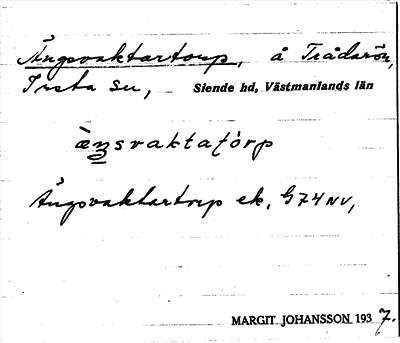 Ängsvaktartorp, å Trådarön,
Irsta sn, Siende hd, Västmanlands län
ä̀ŋsvaktatórp
Ängsvaktartorp ek. G74NV,
MARGIT JOHANSSON 1937.